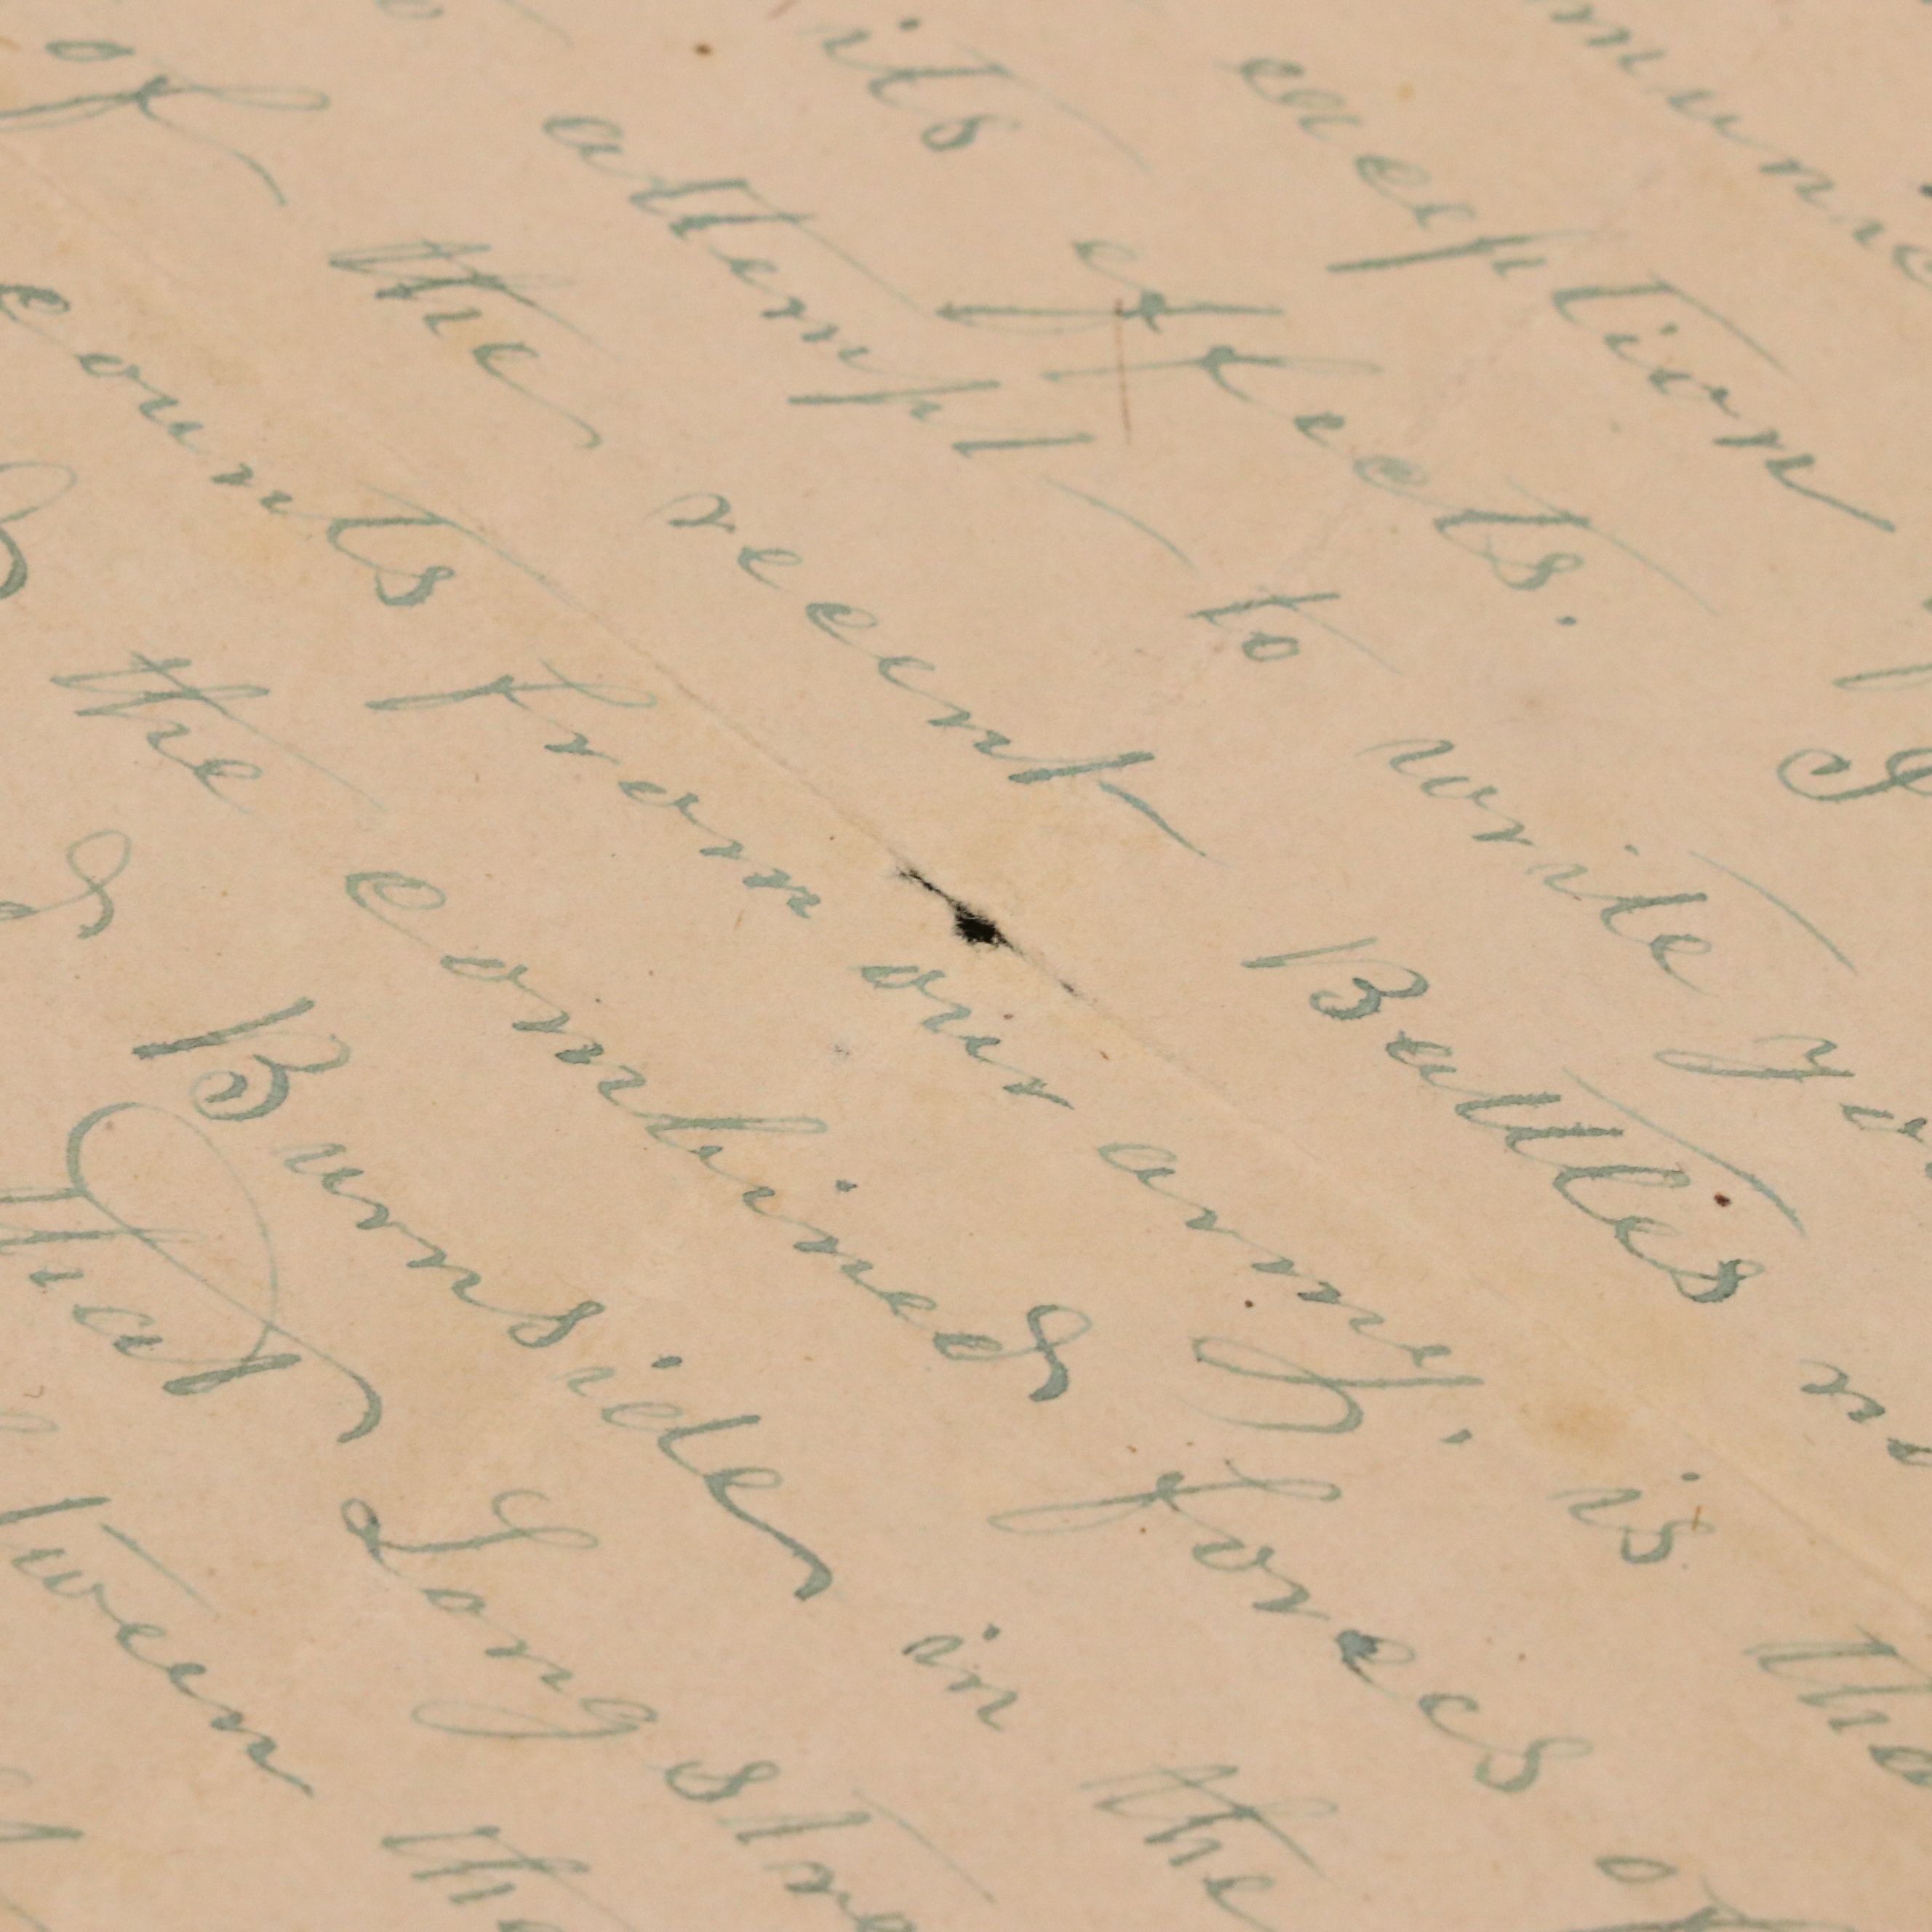 munic
exception
its effects. I
attempt to write You
of the recent Battles
counts from our army. is tha
the combined forces of
Burnside in the
that Longstre
tween the